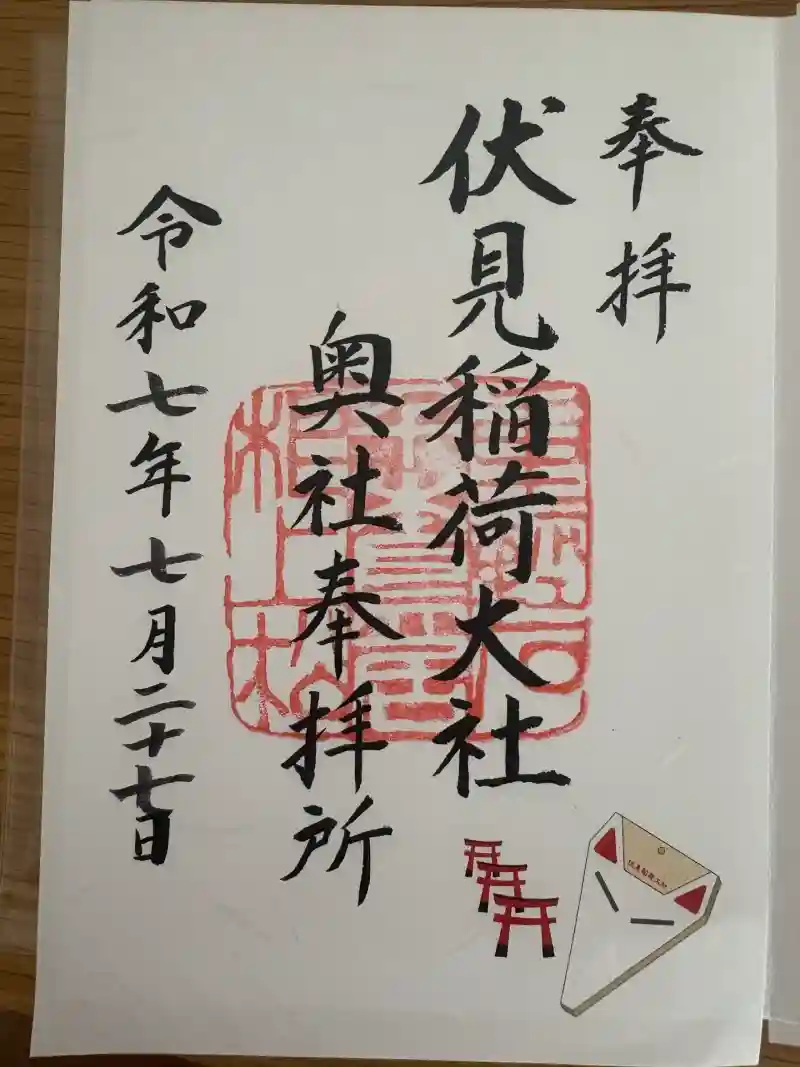 奉拝
伏見稲荷大社
奥社奉拝所
令和七年七月二十七日
伏見稲荷大社